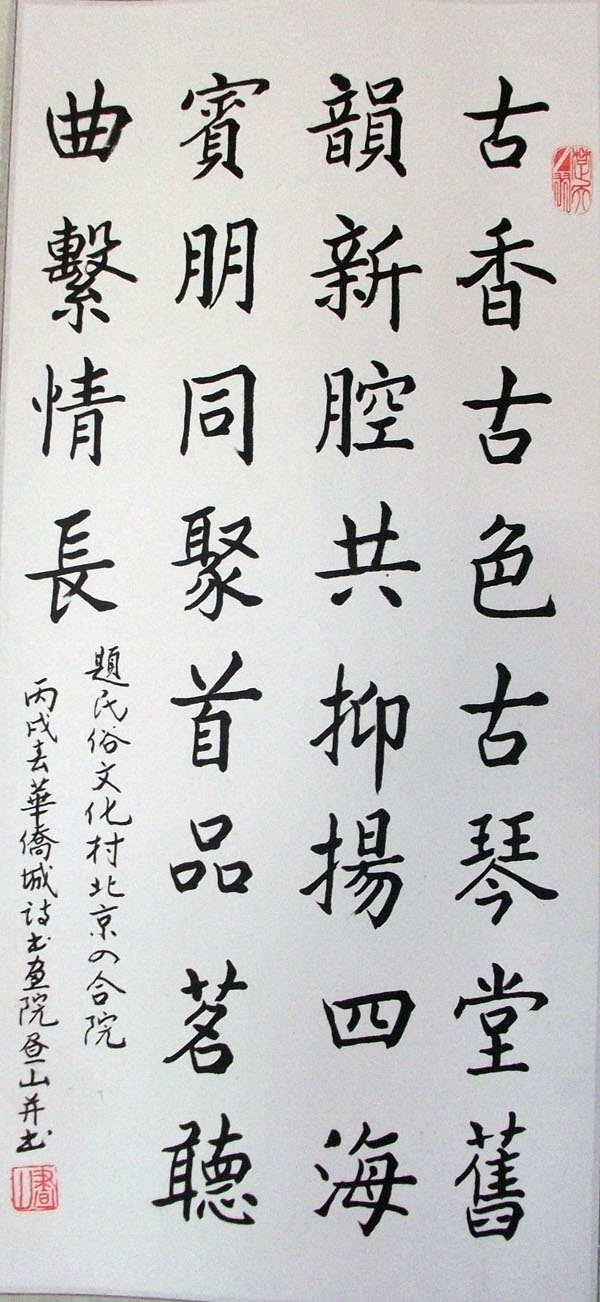 古香古色古琴堂舊
韻新腔共抑揚四海
賓朋同聚首品茗聽
曲繫情長
題民俗文化村北京四合院
丙戌春華僑城詩书画院昼山并书